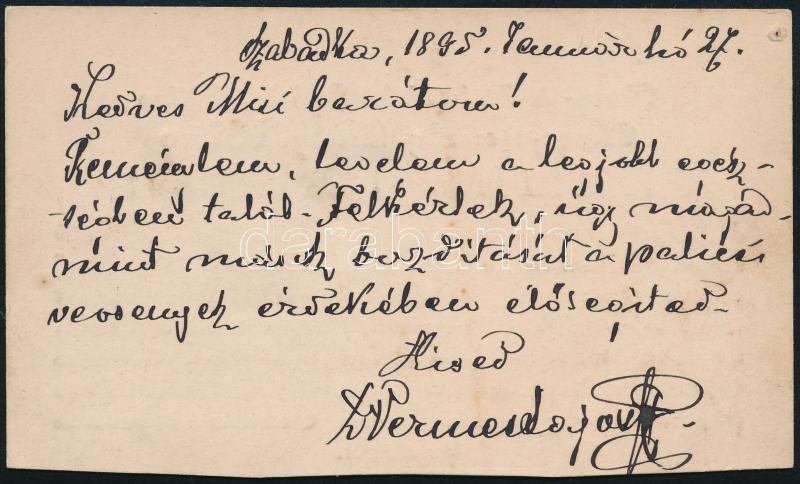 Szabadka, 1895. Januar hó 27.
Kedves Misi barátom!
Reménylem, levelem a legjobb egész-
-ségben talál. Felkérlek, úgy magad-
mint mások buzdítását a palicsi
versenyek érdekében elősegíted.
Hived
DVermes Lajos
darabanth